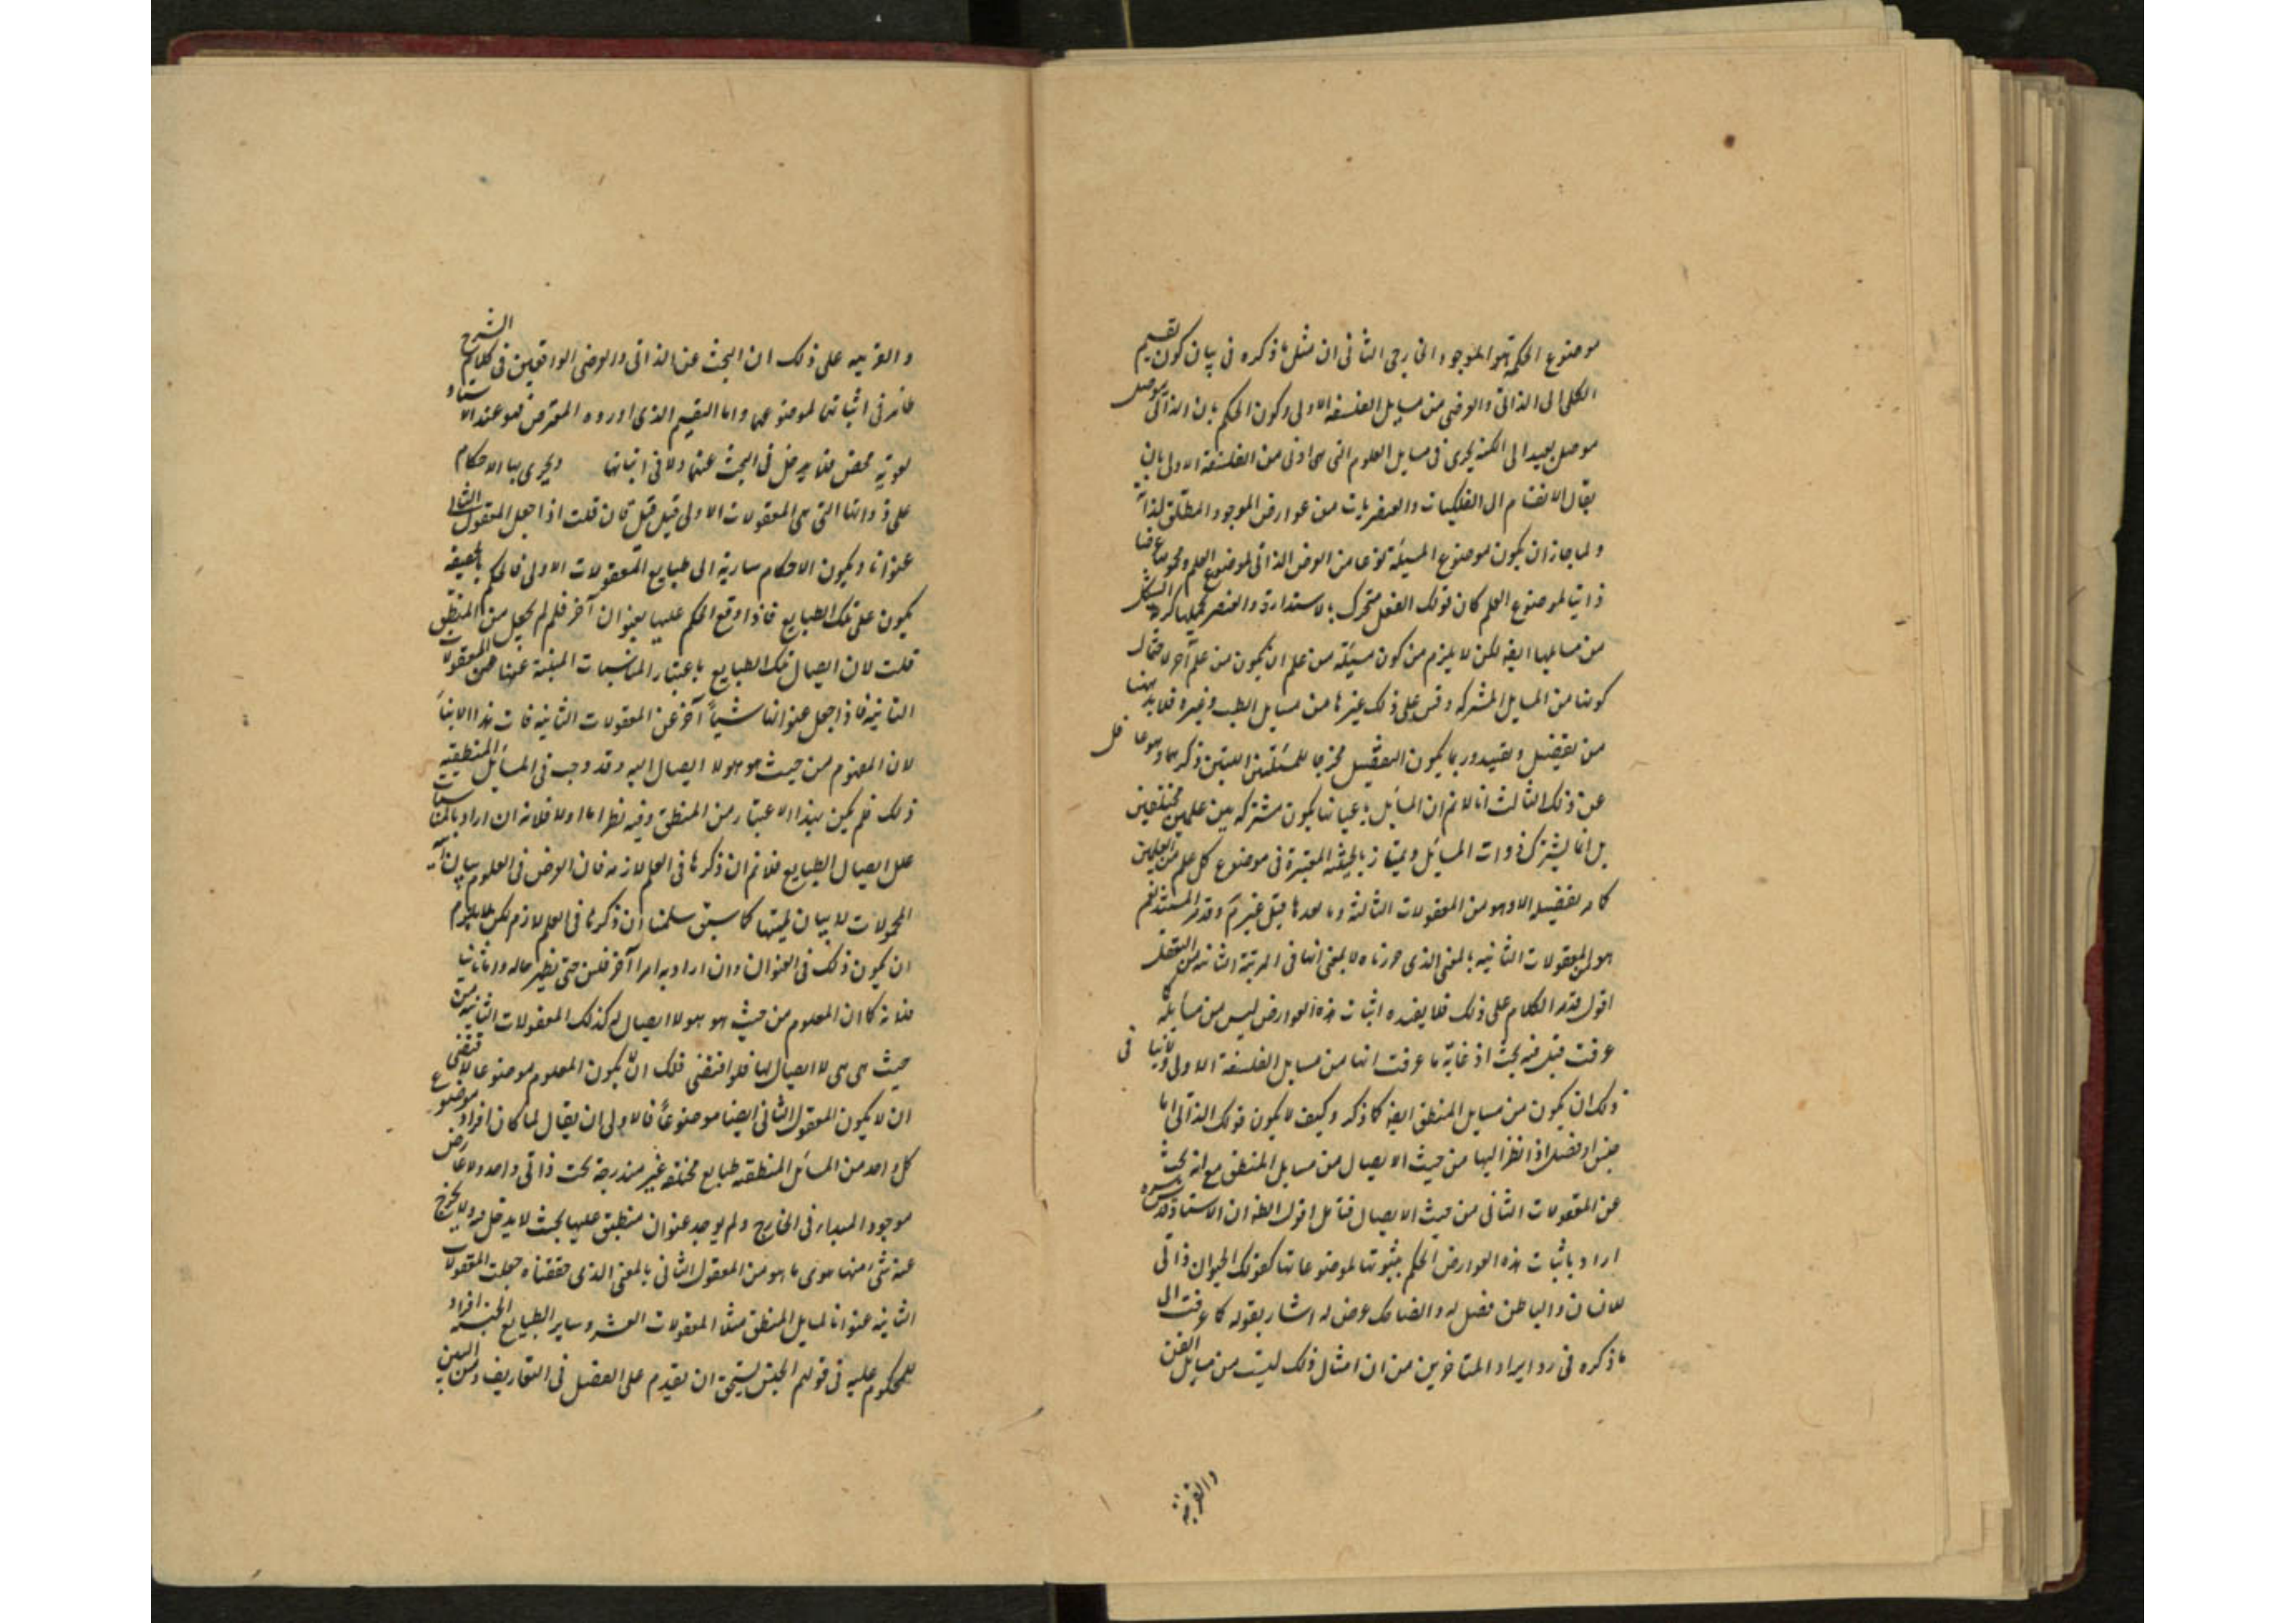 موضوع الحكمة هو الموجود الخارجى الثانى ان مثل ما ذكره فى بيان كون تقسيم
الكلى الى الذاتى والعرضى من مسايل الفلسفة الاولى وكون الحكم بان الذاتى موصل
موصل بعيد الى الكنه يجرى فى مسايل العلوم التى هى ادنى من الفلسفة الاولى بان
يقال الانقسام الى الفلكيات والعنصريات من عوارض الموجود المطلق لذاته
ولما جاز ان يكون موضوع المسئلة نوعا من العرض الذاتى لموضوع العلم ومحمولها عرضا
ذاتيا لموضوع العلم كان قولك الفلك متحرك بالاستدارة والعنصر شكله الكرة
من مسايلها ايضا لكن لا يلزم من كون مسئلة من علم ان يكون من علم آخر لاحتمال
كونها من المسايل المشتركه وقس على ذلك غيرها من مسايل الطب وغيره فلا بد ههنا
من تفصيل وتقييد وربما يكون التفصيل مخرجا للمسئلتين اللتين ذكرهما وهو غافل
عن ذلك الثالث انا لا نم ان المسائل باعيانها يكون مشتركه بين علمين مختلفين
بل انما يشترك ذوات المسائل ويمتاز بالحيثية المعتبرة فى موضوع كل علم من العلمين
كما مر تفصيله الا وهو من المعقولات الثالثة وما بعدها قيل غير مم وقد مر المستند نعم
هو من المعقولات الثانيه بالمعنى الذى حررناه لا بمعنى انها فى المرتبة الثانية من التعقل
اقول مدار الكلام على ذلك فلا يفيده اثبات هذه العوارض ليس من مسايله كما
عرفت قيل فيه بحث اذ غاية ما عرفت انها من مسايل الفلسفة الاولى ولا ينافى
ذلك ان يكون من مسايل المنطق ايضا كما ذكر وكيف لا يكون قولك الذاتى اما
جنس او فصل اذا نظر اليها من حيث الايصال من مسايل المنطق مع انه بحث
عن المعقولات الثانى من حيث الايصال فتامل اقول الظ ان الاستاد قدس سره
اراد باثبات هذه العوارض الحكم بثبوتها لموضوعاتها كقولك الحيوان ذاتى
للانسان والناطق فصل له والضاحك عرض له اشار بقوله كما عرفت الى
ما ذكره فى رد ايراد المتاخرين من ان امثال ذلك ليست من مسايل الفن
والقرينة
والقرينه على ذلك ان البحث عن الذاتى والعرضى الواقعين فى كلام الشرح
ظاهر فى اثباتهما لموضوعهما واما التقسيم الذى اورده المعترض فهو عند الاستاد
لغوية محض فلا يدخل فى البحث عنها ولا فى اثباتها ويجرى بها الاحكام
على ذواتها التى هى المعقولات الاولى قيل قيل فان قلت اذا جعل المعقول الثانى
عنوانا ويكون الاحكام سارية الى طبايع المعقولات الاولى فالحكم بالحقيقة
يكون على تلك الطبايع فاذا وقع الحكم عليها بعنوان آخر فلم لم يجعل من المنطق
قلت لان ايصال تلك الطبايع باعتبار المناسبات المنبئة عنها من المعقولات
الثانية فاذا جعل عنوانها شيئا آخر عن المعقولات الثانية فات هذا الانباء
لان المعلوم من حيث هو هو لا ايصال اليه وقد وجب فى المسائل المنطقيه
ذلك فلم يكن بهذا الاعتبار من المنطق وفيه نظر اما اولا فلانه ان اراد بالمناسبات
علل ايصال الطبايع فلا نم ان ذكرها فى العلم لازمه فان الغرض فى العلوم بيان انية
المحمولات لا بيان لميتها كما سبق سلمنا ان ذكرها فى العلم لازم لكن لا يلزم
ان يكون ذلك فى العنوان وان اراد به امرا آخر فليبين حتى ينظر حاله واما ثانيا
فلانه كما ان المعلوم من حيث هو هو لا ايصال له كذلك المعقولات الثانيه من
حيث هى هى لا ايصال لها فلو اقتضى ذلك ان لا يكون المعلوم موضوعا لاقتضى
ان لا يكون المعقول الثانى ايضا موضوعا فالاولى ان يقال لما كان افراد موضوع
كل واحد من المسائل المنطقيه طبايع مختلفه غير مندرجة تحت ذاتى واحد ولا عارض
موجود المبداء فى الخارج ولم يوجد عنوان منطبق عليها بحيث لا يدخل فيه ولا يخرج
عنه شئ منها سوى ما هو من المعقول الثانى بالمعنى الذى حققناه جعلت المعقولات
الثانيه عنوانا لمسايل المنطق مثلا المعقولات العشر وساير الطبايع الجنسيه افراد
للمحكوم عليه فى قولهم الجنس يستحق ان يقدم على الفصل فى التعاريف ومن البين